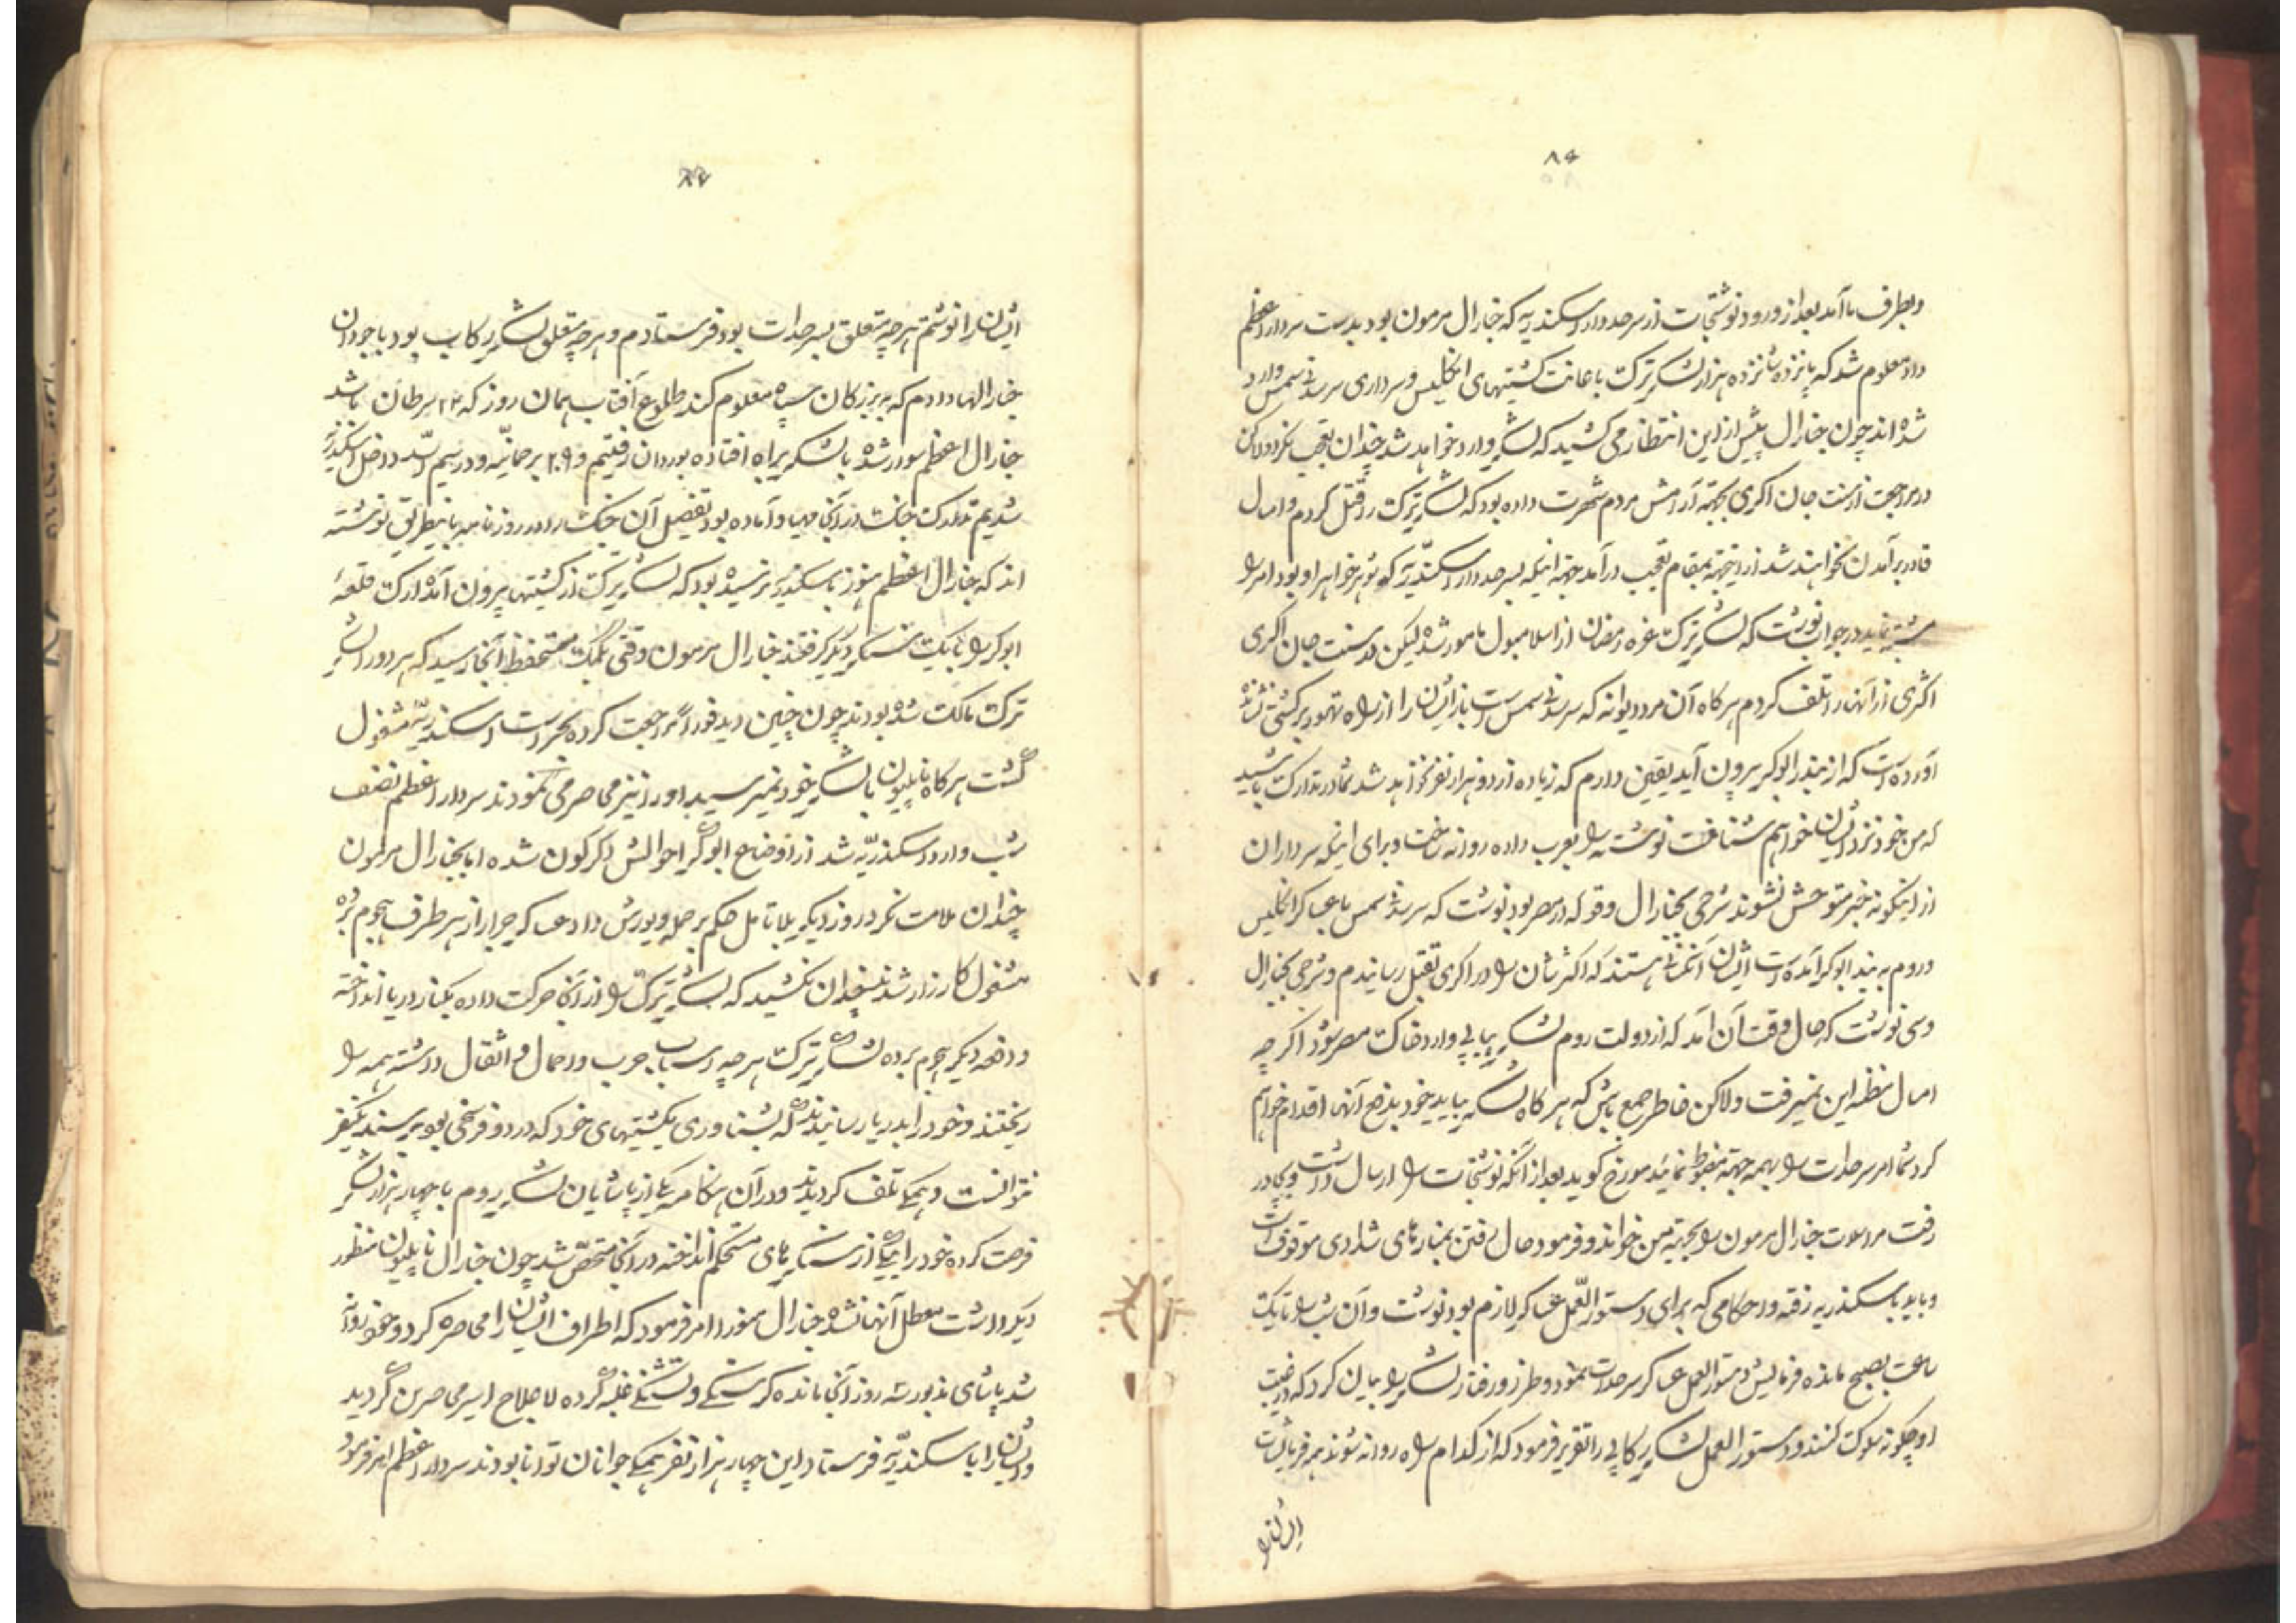 ۸۶
و بطرف ما آمد بعد از ورود نوشتجات از سرحددار اسکندریه که جنارال مرمون بود بدست سردار اعظم
داد معلوم شد که پانزده شانزده هزار لشکر ترک باعانت کشتیهای انگلیس و سرداری سرسدنی سمس وارد
شده اند چون جنارال پیش از این انتظار می کشید که لشکر وارد خواهد شد چندان تعجب نکرد و لاکن
در مراجعت از سنت جان اکری بجهة آرامش مردم شهرت داده بود که لشکر ترک را قتل کردم و امسال
قادر برآمدن نخواهند شد از اینجهة بمقام تعجب درآمد جهة اینکه بسرحددار اسکندریه که شوهر خواهر او بود امر را
مشتبه نماید در جواب نوشت که لشکر ترک غره رمضان از اسلامبول مامور شده لیکن در سنت جان اکری
اکثری از آنها را تلف کردم هر گاه آن مرد دیوانه که سرسدنی سمس است باز ایشان را از راه تهور بر کشتی نشانده
آورده است که از بندر ابوکر بیرون آید یقین دارم که زیاده از دو هزار نفر نخواهد شد شما در تدارک باشید
که من خود نزد ایشان خواهم شتافت نوشته را بعرب داده روانه ساخت و برای اینکه سرداران
از اینگونه خبر متوحش نشوند شرحی بجنارال دوقه که در مصر بود نوشت که سرسدنی سمس با عساکر انگلیس
و روم به بندر ابوکر آمده است ایشان آنکسانی هستند که اکثرشان را در اکری بقتل رسانیدم و شرحی بجنارال
دسی نوشت که حال وقت آن آمد که از دولت روم لشکر پیاپی وارد خاک مصر شود اگر چه
امسال مظنه این نمیرفت ولاکن خاطر جمع باش که هر گاه لشکر بیاید خود بدفع آنها اقدام خواهم
کرد شما امر سرحدات را بهمه جهة مضبوط نمائید مورخ گوید بعد از آنکه نوشتجات را ارسال داشت و بچادر
رفت مراسلات جنارال مرمون را بجهة من خواند و فرمود حال رفتن بمنارهای شدادی موقوف است
و باید باسکندریه رفته و احکامی که برای دستور العمل عساکر لازم بود نوشت و آن شب را تا یک
ساعت بصبح مانده فرمایش دستور العمل عساکر سرحدات نمود و طرز و رفتار لشکر را بیان کرد که در غیبت
او چگونه سلوک کنند و دستور العمل لشکر رکابی را تقریر فرمود که از کدام راه روانه شوند همه فرمایشات
ایشان را
ایشان را نوشتم هر چه متعلق بسرحدات بود فرستادم و هر چه متعلق لشکر رکاب بود باجودان
جنارالها دادم که بر بزرگان سپاه معلوم کند طلوع آفتاب همان روز که ۲۴ سرطان باشد
جنارال اعظم سوار شده با لشکر براه افتاده بوردان رفتیم و ۲۰۹ برحمانیّه و در سیم اسد داخل اسکندریّه
شدیم تدارک جنک در آنجا مهیا و آماده بود تفصیل آن جنک را در روزنامه باینطریق نوشته
اند که جنارال اعظم هنوز باسکندریه نرسیده بود که لشکر ترک از کشتیها بیرون آمده ارک قلعهٔ
ابوکر را با یک سنگر دیگر گرفتند جنارال مرمون وقتی بکمک مستحفظ آنجا رسید که هر دو را لشکر
ترک مالک شده بودند چون چنین دید فوراً مراجعت کرده بحراست اسکندریّه مشغول
گشت هر گاه ناپلیون با لشکر خود نمیرسید او را نیز محاصره می نمودند سردار اعظم نصف
شب وارد اسکندریّه شد از اوضاع ابوکر احوالش دگرگون شده اما بجنارال مرمون
چندان ملامت نکرد روز دیگر بلا تامل حکم بر حمله و یورش داد عساکر جرار از هر طرف هجوم برده
مشغول کارزار شدند چندان نکشید که لشکر ترک را از آنجا حرکت داده بکنار دریا انداخته
و دفعه دیگر هجوم برده لشکر ترک هر چه اسباب حرب و احمال و اثقال داشته همه را
ریختند و خود را بدریا رسانیدند که بشناوری بکشتیهای خود که در دو فرسخی بود برسند یکنفر
نتوانست و همکی تلف کردیدند و در آن هنکامه یکی از پاشایان لشکر روم با چهار هزار لشکر
فرصت کرده خود را بیکی از سنکرهای مستحکم انداخته در آنجا متحصّن شد چون جنارال ناپلیون منظور
دیگر داشت معطل آنها نشده جنارال منو را امر فرمود که اطراف ایشان را محاصره کرد و خود روانه
شد پاشای مذبور سه روز آنجا مانده کرسنکی و تشنکی غلبه کرده لا علاج اسیر محاصرین گردید
و ایشان را باسکندریّه فرستاد این چهار هزار نفر همکی جوانان توانا بودند سردار اعظم امر فرمود